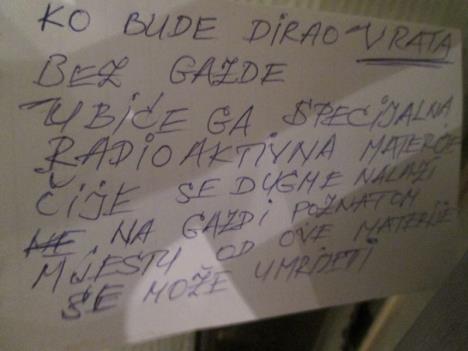 KO BUDE DIRAO VRATA
BEZ GAZDE
UBIĆE GA SPECIJALNA
RADIOAKTIVNA MATERIJE
ČIJE SE DUGME NALAZI
NE NA GAZDI POZNATOM
MIJESTU OD OVE MATERIJE
SE MOŽE UMRIJETI